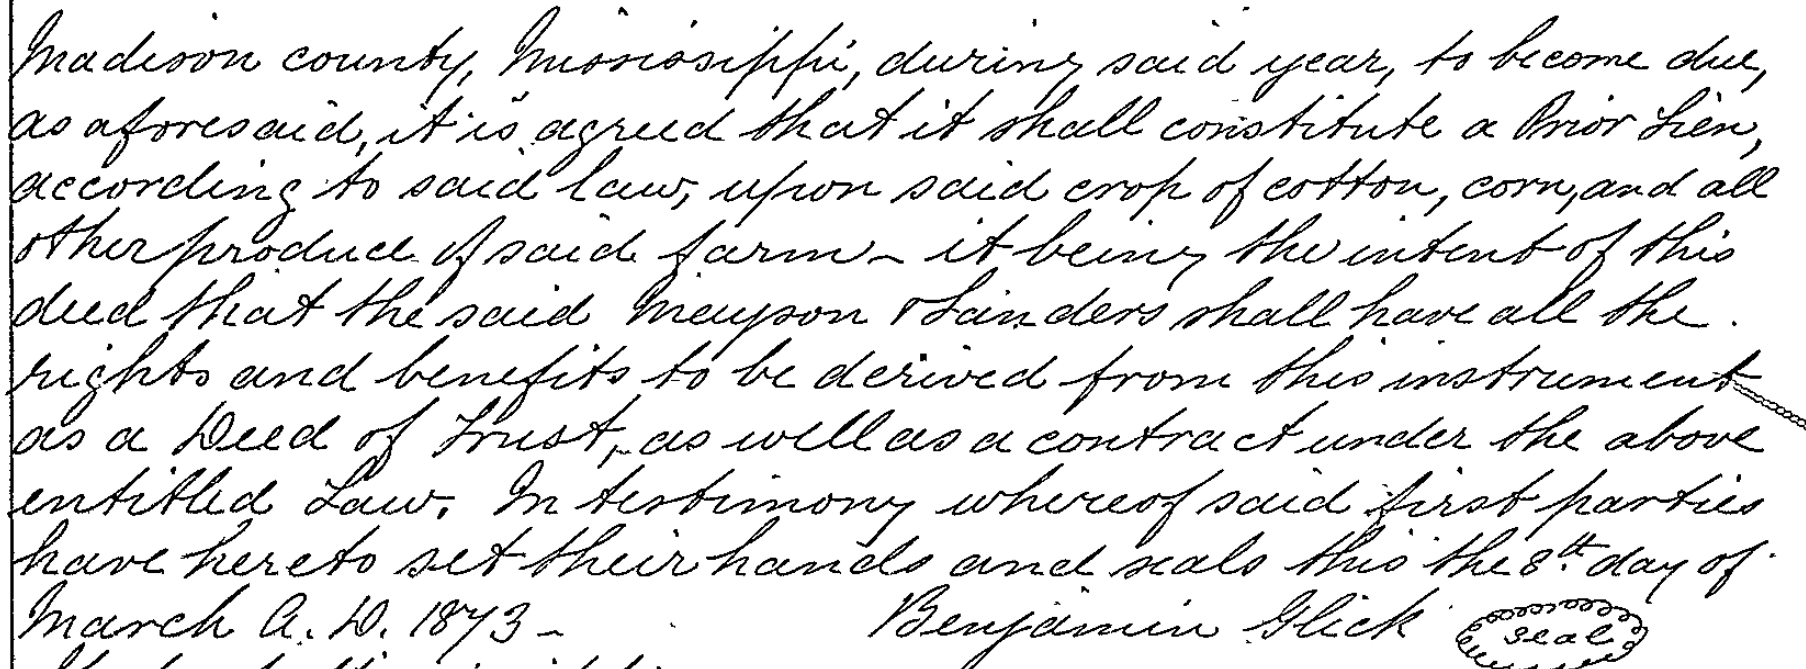 Madison county, Mississippi, during said year, to become due,
as aforesaid, it is agreed that it shall constitute a Prior Lien,
according to said law, upon said crop of cotton, corn, and all
other produce of said farm - it being the intent of this
deed that the said Mayson & Sanders shall have all the
rights and benefits to be derived from this instrument
as a Deed of Trust, as well as a contract under the above
entitled Law. In testimony whereof said first parties
have hereto set their hands and seals this the 8th day of
March A. D. 1873 - Benjamin Glick seal